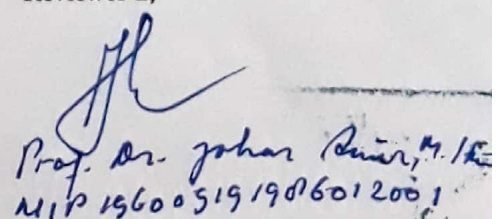 Prof. Dr. Johar Amir, M.
NIP 196005191986012001